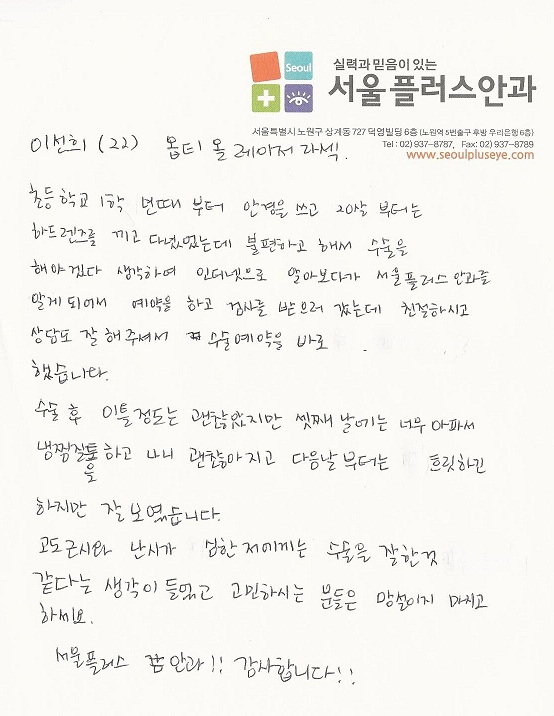 Seoul
실력과 믿음이 있는
서울플러스안과
서울특별시 노원구 상계동 727 덕영빌딩 6층 (노원역 5번출구 후방 우리은행 6층)
Tel : 02) 937-8787, Fax: 02) 937-8789
www.seoulpluseye.com
이선희 (22) 옵티 올 레이저 라섹.
초등학교 1학 년때 부터 안경을 쓰고 20살 부터는
하드렌즈를 끼고 다녔었는데 불편하고 해서 수술을
해야겠다 생각하여 인터넷으로 알아보다가 서울플러스안과를
알게 되어서 예약을 하고 검사를 받으러 갔는데 친절하시고
상담도 잘 해주셔서 수술예약을 바로
했습니다.
수술 후 이틀정도는 괜찮았지만 셋째 날에는 너무 아파서
냉찜질을 하고 나니 괜찮아지고 다음날부터는 흐릿하긴
하지만 잘 보였습니다.
고도근시와 난시가 심한 저에게는 수술을 잘한것
같다는 생각이 들었고 고민하시는 분들은 망설이지 마시고
하세요.
서울플러스 안과!! 감사합니다!!